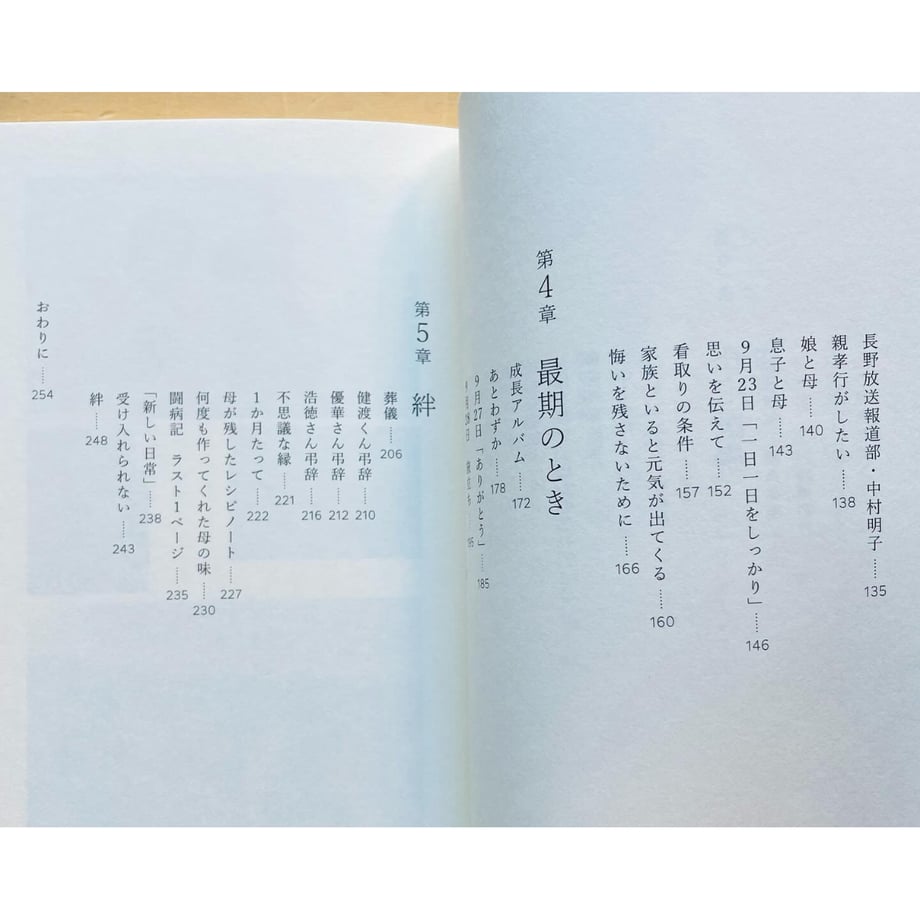 長野放送報道部・中村明子……135
親孝行がしたい……138
娘と母……140
息子と母……143
9月23日「一日一日をしっかり」……146
思いを伝えて……152
看取りの条件……157
家族といると元気が出てくる……160
悔いを残さないために……166
第4章 最期のとき
成長アルバム……172
あとわずか……178
9月27日「ありがとう」……185
9月28日
第5章 絆
葬儀……206
健渡くん弔辞……210
優華さん弔辞……212
浩徳さん弔辞……216
不思議な縁……221
1か月たって……222
母が残したレシピノート……227
何度も作ってくれた母の味……230
闘病記 ラスト1ページ……235
「新しい日常」……238
受け入れられない……243
絆……248
おわりに……254